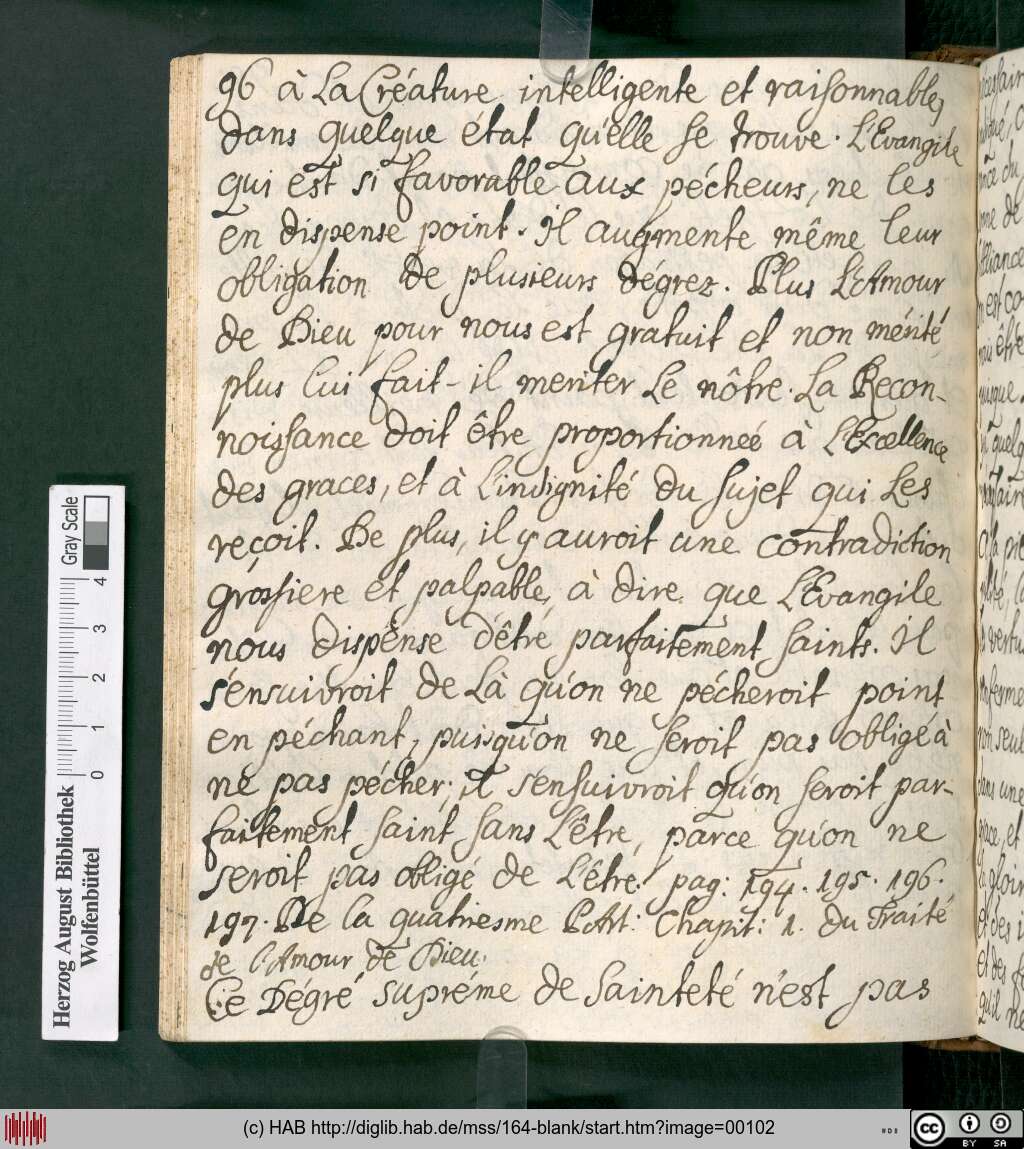 96 à La Créature intelligente et raisonnable,
dans quelque état qu'elle se trouve. L'Evangile
qui est si favorable aux pécheurs, ne les
en dispense point. Il augmente même leur
obligation de plusieurs dégrez. Plus L'Amour
de Dieu pour nous est gratuit et non mérité
plus lui fait-il meriter Le nôtre. La Recon-
noissance doit être proportionneé à L'Excellence
des graces, et à L'indignité du sujet qui Les
reçoit. De plus, il y auroit une contradiction
grossiere et palpable, à dire que L'Evangile
nous dispense d'être parfaitement saints. Il
s'ensuivroit de Là qu'on ne pécheroit point
en péchant, puisqu'on ne seroit pas obligé à
ne pas pécher; il s'ensuivroit qu'on seroit par-
faitement saint sans L'être, parce qu'on ne
seroit pas obligé de L'étre. pag: 194. 195. 196.
197. De la quatriesme Part: Chapit: 1. du Traité
de l'Amour de Dieu.
Ce Dégré supréme de sainteté n'est pas
Herzog August Bibliothek
Wolfenbüttel
0 1 2 3 4
Gray Scale
(c) HAB http://diglib.hab.de/mss/164-blank/start.htm?image=00102
cc BY SA